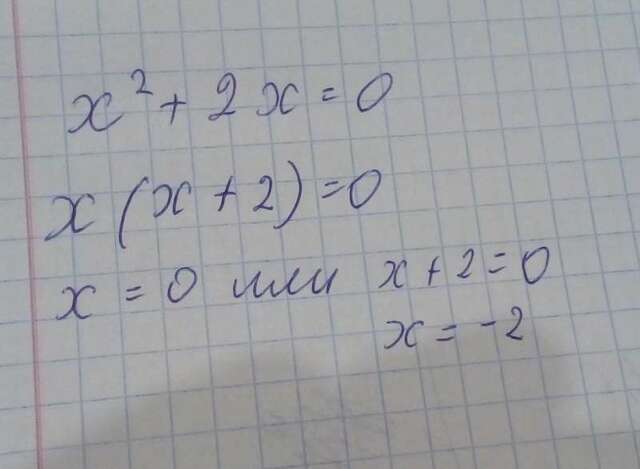 x² + 2x = 0
x (x + 2) = 0
x = 0 или x + 2 = 0
x = -2